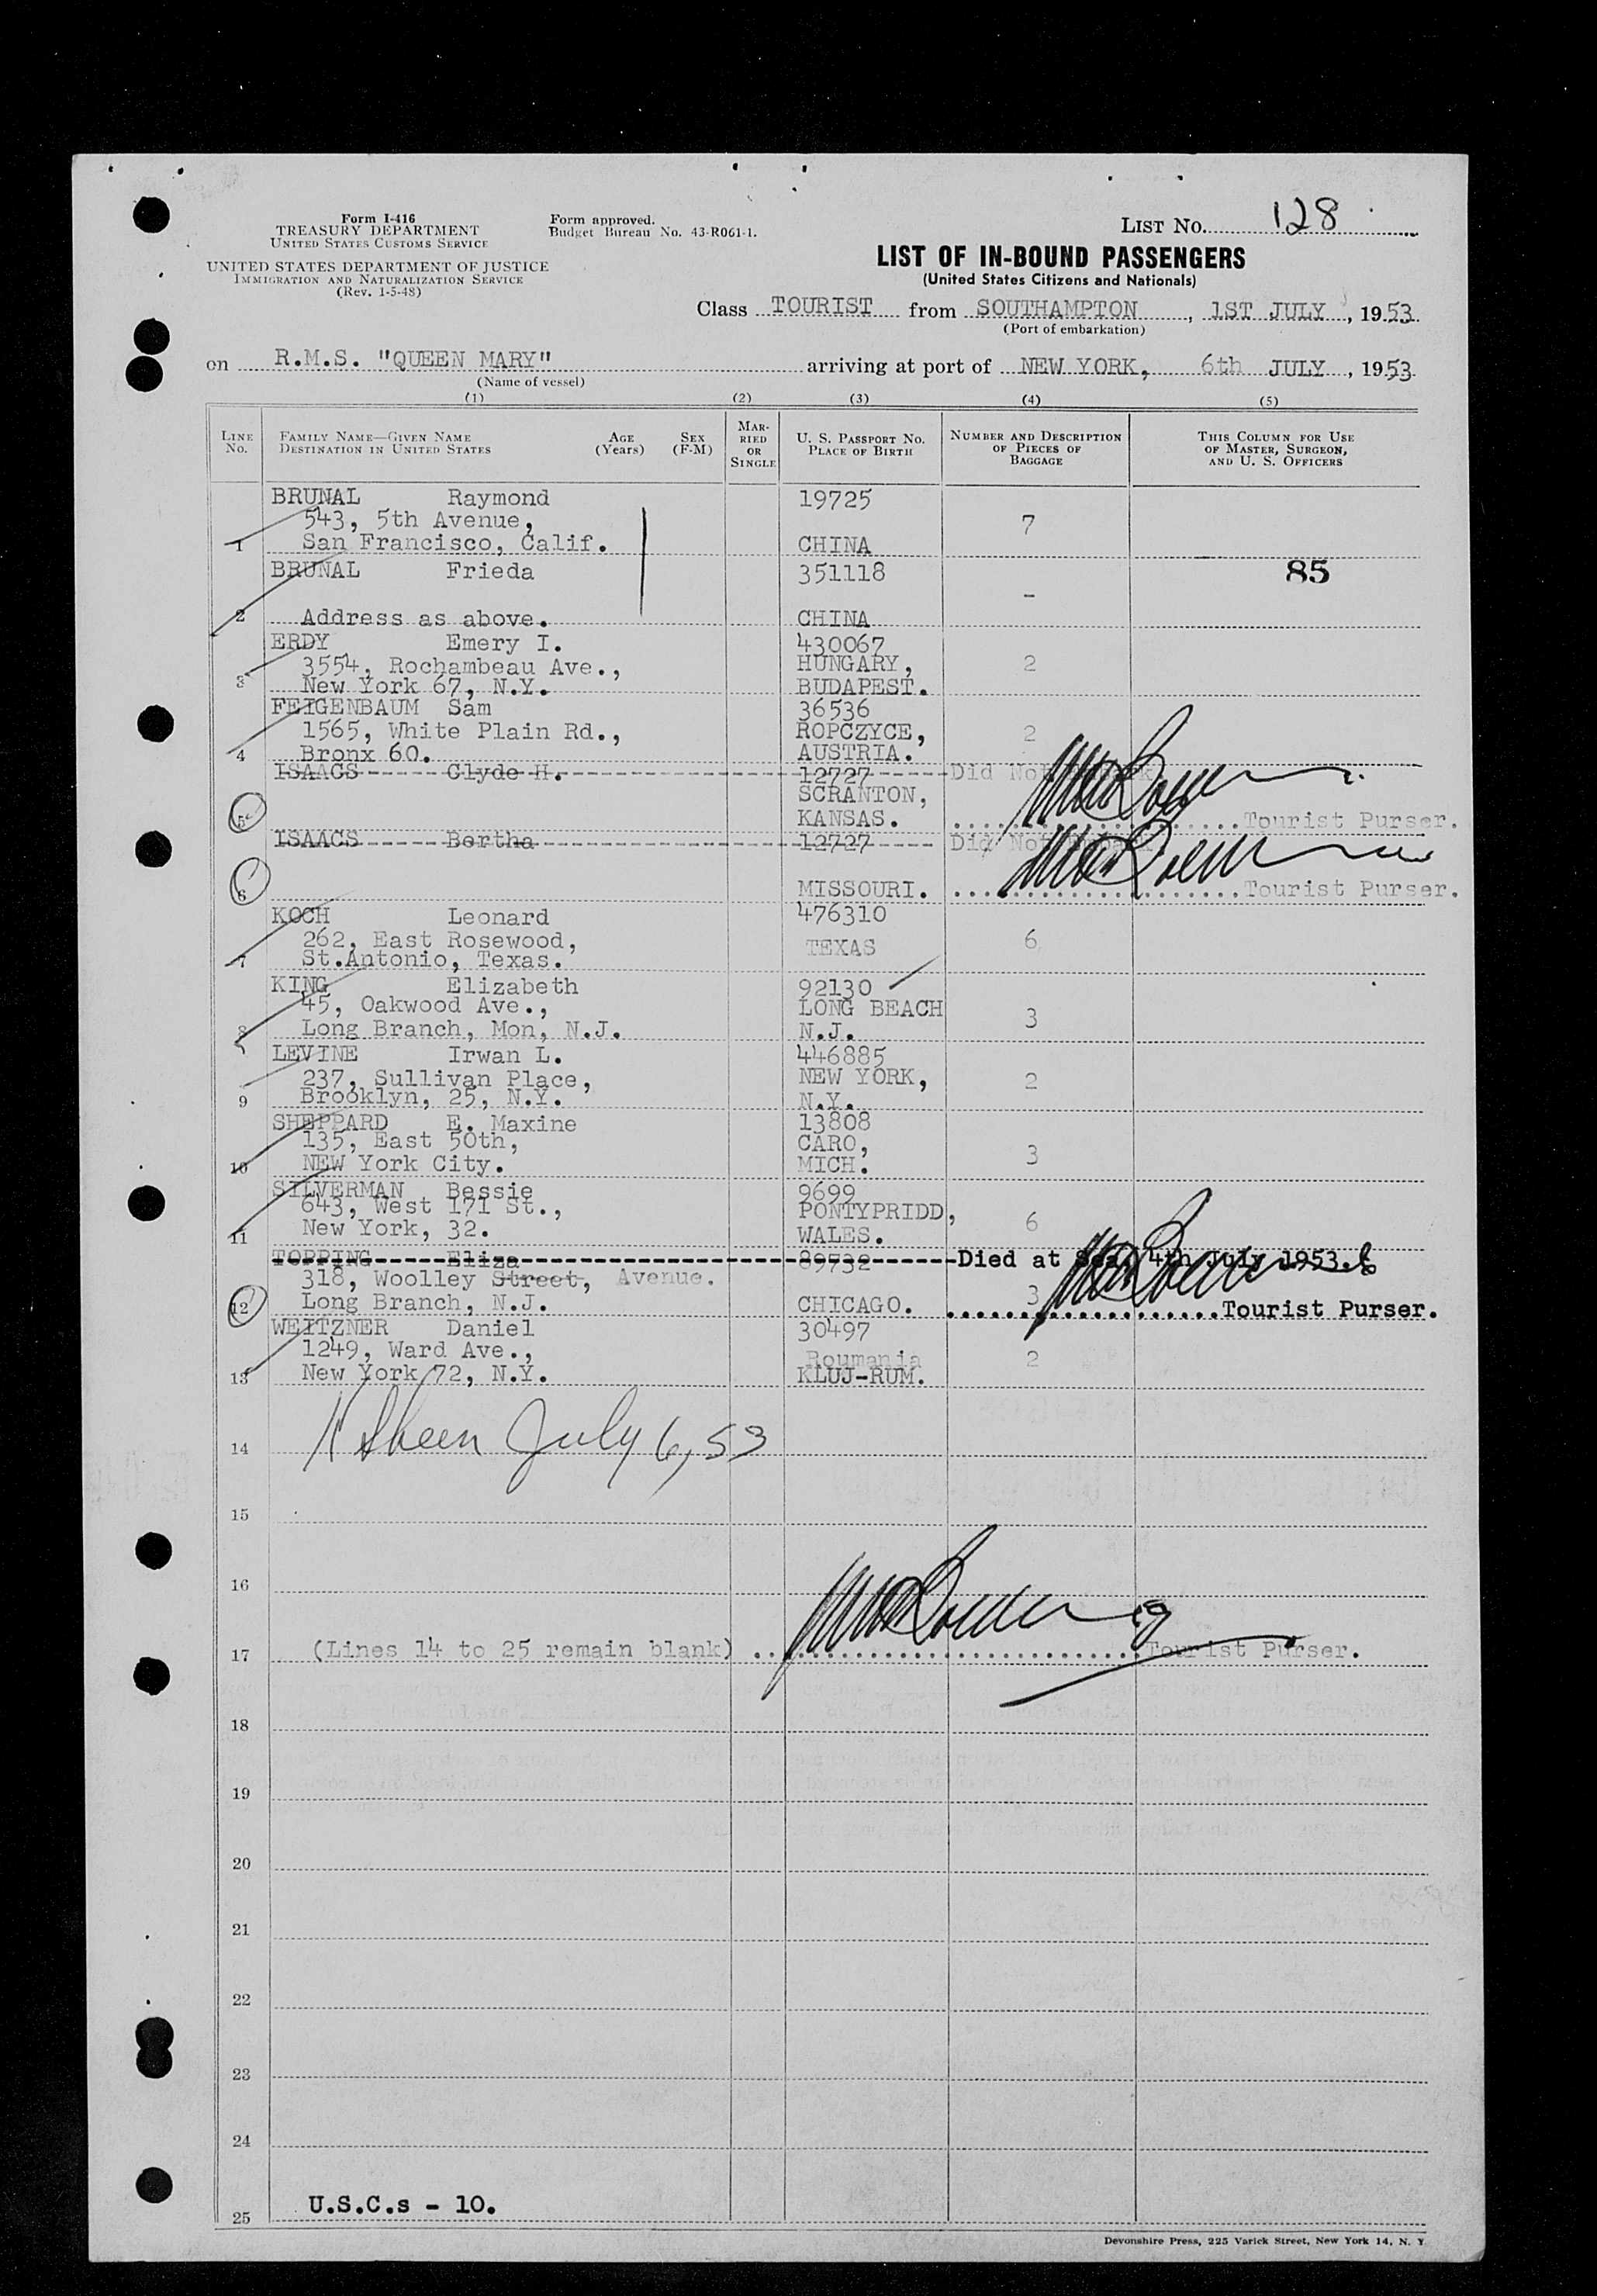 Form I-416
TREASURY DEPARTMENT
UNITED STATES CUSTOMS SERVICE
UNITED STATES DEPARTMENT OF JUSTICE
IMMIGRATION AND NATURALIZATION SERVICE
(Rev. 1-5-48)
Form approved.
Budget Bureau No. 43-R061-1.
LIST NO. 128
LIST OF IN-BOUND PASSENGERS
(United States Citizens and Nationals)
Class TOURIST from SOUTHAMPTON, 1ST JULY, 1953
(Port of embarkation)
on R.M.S. "QUEEN MARY" arriving at port of NEW YORK, 6th JULY, 1953
(Name of vessel)
(1) (2) (3) (4) (5)
LINE NO. FAMILY NAME—GIVEN NAME DESTINATION IN UNITED STATES AGE (Years) SEX (F-M) MARRIED OR SINGLE U. S. PASSPORT NO. PLACE OF BIRTH NUMBER AND DESCRIPTION OF PIECES OF BAGGAGE THIS COLUMN FOR USE OF MASTER, SURGEON, AND U. S. OFFICERS
BRUNAL Raymond 19725
543, 5th Avenue, 7
1 San Francisco, Calif. CHINA
BRUNAL Frieda 351118 85
-
2 Address as above. CHINA
ERDY Emery I. 430067
3554, Rochambeau Ave., HUNGARY, 2
3 New York 67, N.Y. BUDAPEST.
FEIGENBAUM Sam 36536
1565, White Plain Rd., ROPCZYCE, 2
4 Bronx 60. AUSTRIA.
ISAACS Clyde H. 12727 Did Not Embark
SCRANTON,
5 KANSAS. Tourist Purser.
ISAACS Bertha 12727 Did Not Embark
6 MISSOURI. Tourist Purser.
KOCH Leonard 476310
262, East Rosewood, TEXAS 6
7 St.Antonio, Texas.
KING Elizabeth 92130
45, Oakwood Ave., LONG BEACH 3
8 Long Branch, Mon, N.J. N.J.
LEVINE Irwan L. 446885
237, Sullivan Place, NEW YORK, 2
9 Brooklyn, 25, N.Y. N.Y.
SHEPPARD E. Maxine 13808
135, East 50th, CARO, 3
10 NEW York City. MICH.
SILVERMAN Bessie 9699
643, West 171 St., PONTYPRIDD, 6
11 New York, 32. WALES.
TOPPING Eliza 89732 Died at Sea, 4th July 1953.
318, Woolley Street, Avenue. 3
12 Long Branch, N.J. CHICAGO. Tourist Purser.
WEITZNER Daniel 30497
1249, Ward Ave., Roumania 2
13 New York 72, N.Y. KLUJ-RUM.
14 July 6, 53
15
16
17 (Lines 14 to 25 remain blank) Tourist Purser.
18
19
20
21
22
23
24
25 U.S.C.s - 10.
Devonshire Press, 225 Varick Street, New York 14, N. Y.